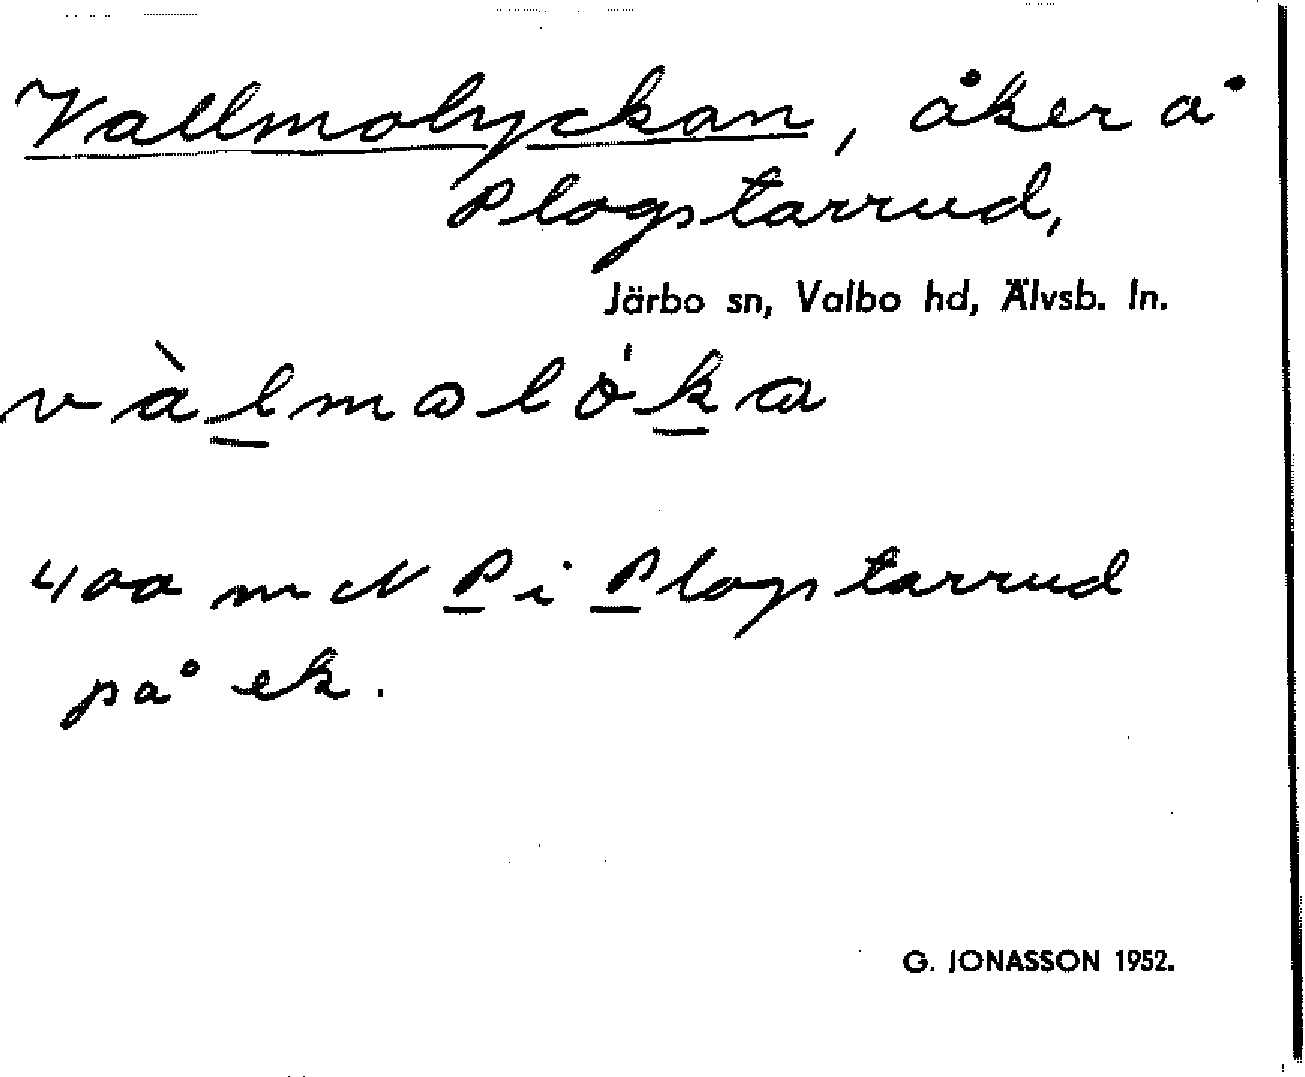 Vallmolyckan, åker å
Plogstarrud,
Järbo sn, Valbo hd, Älvsb. ln.
400 m N P i Plogstarrud
på ek.
G. JONASSON 1952.